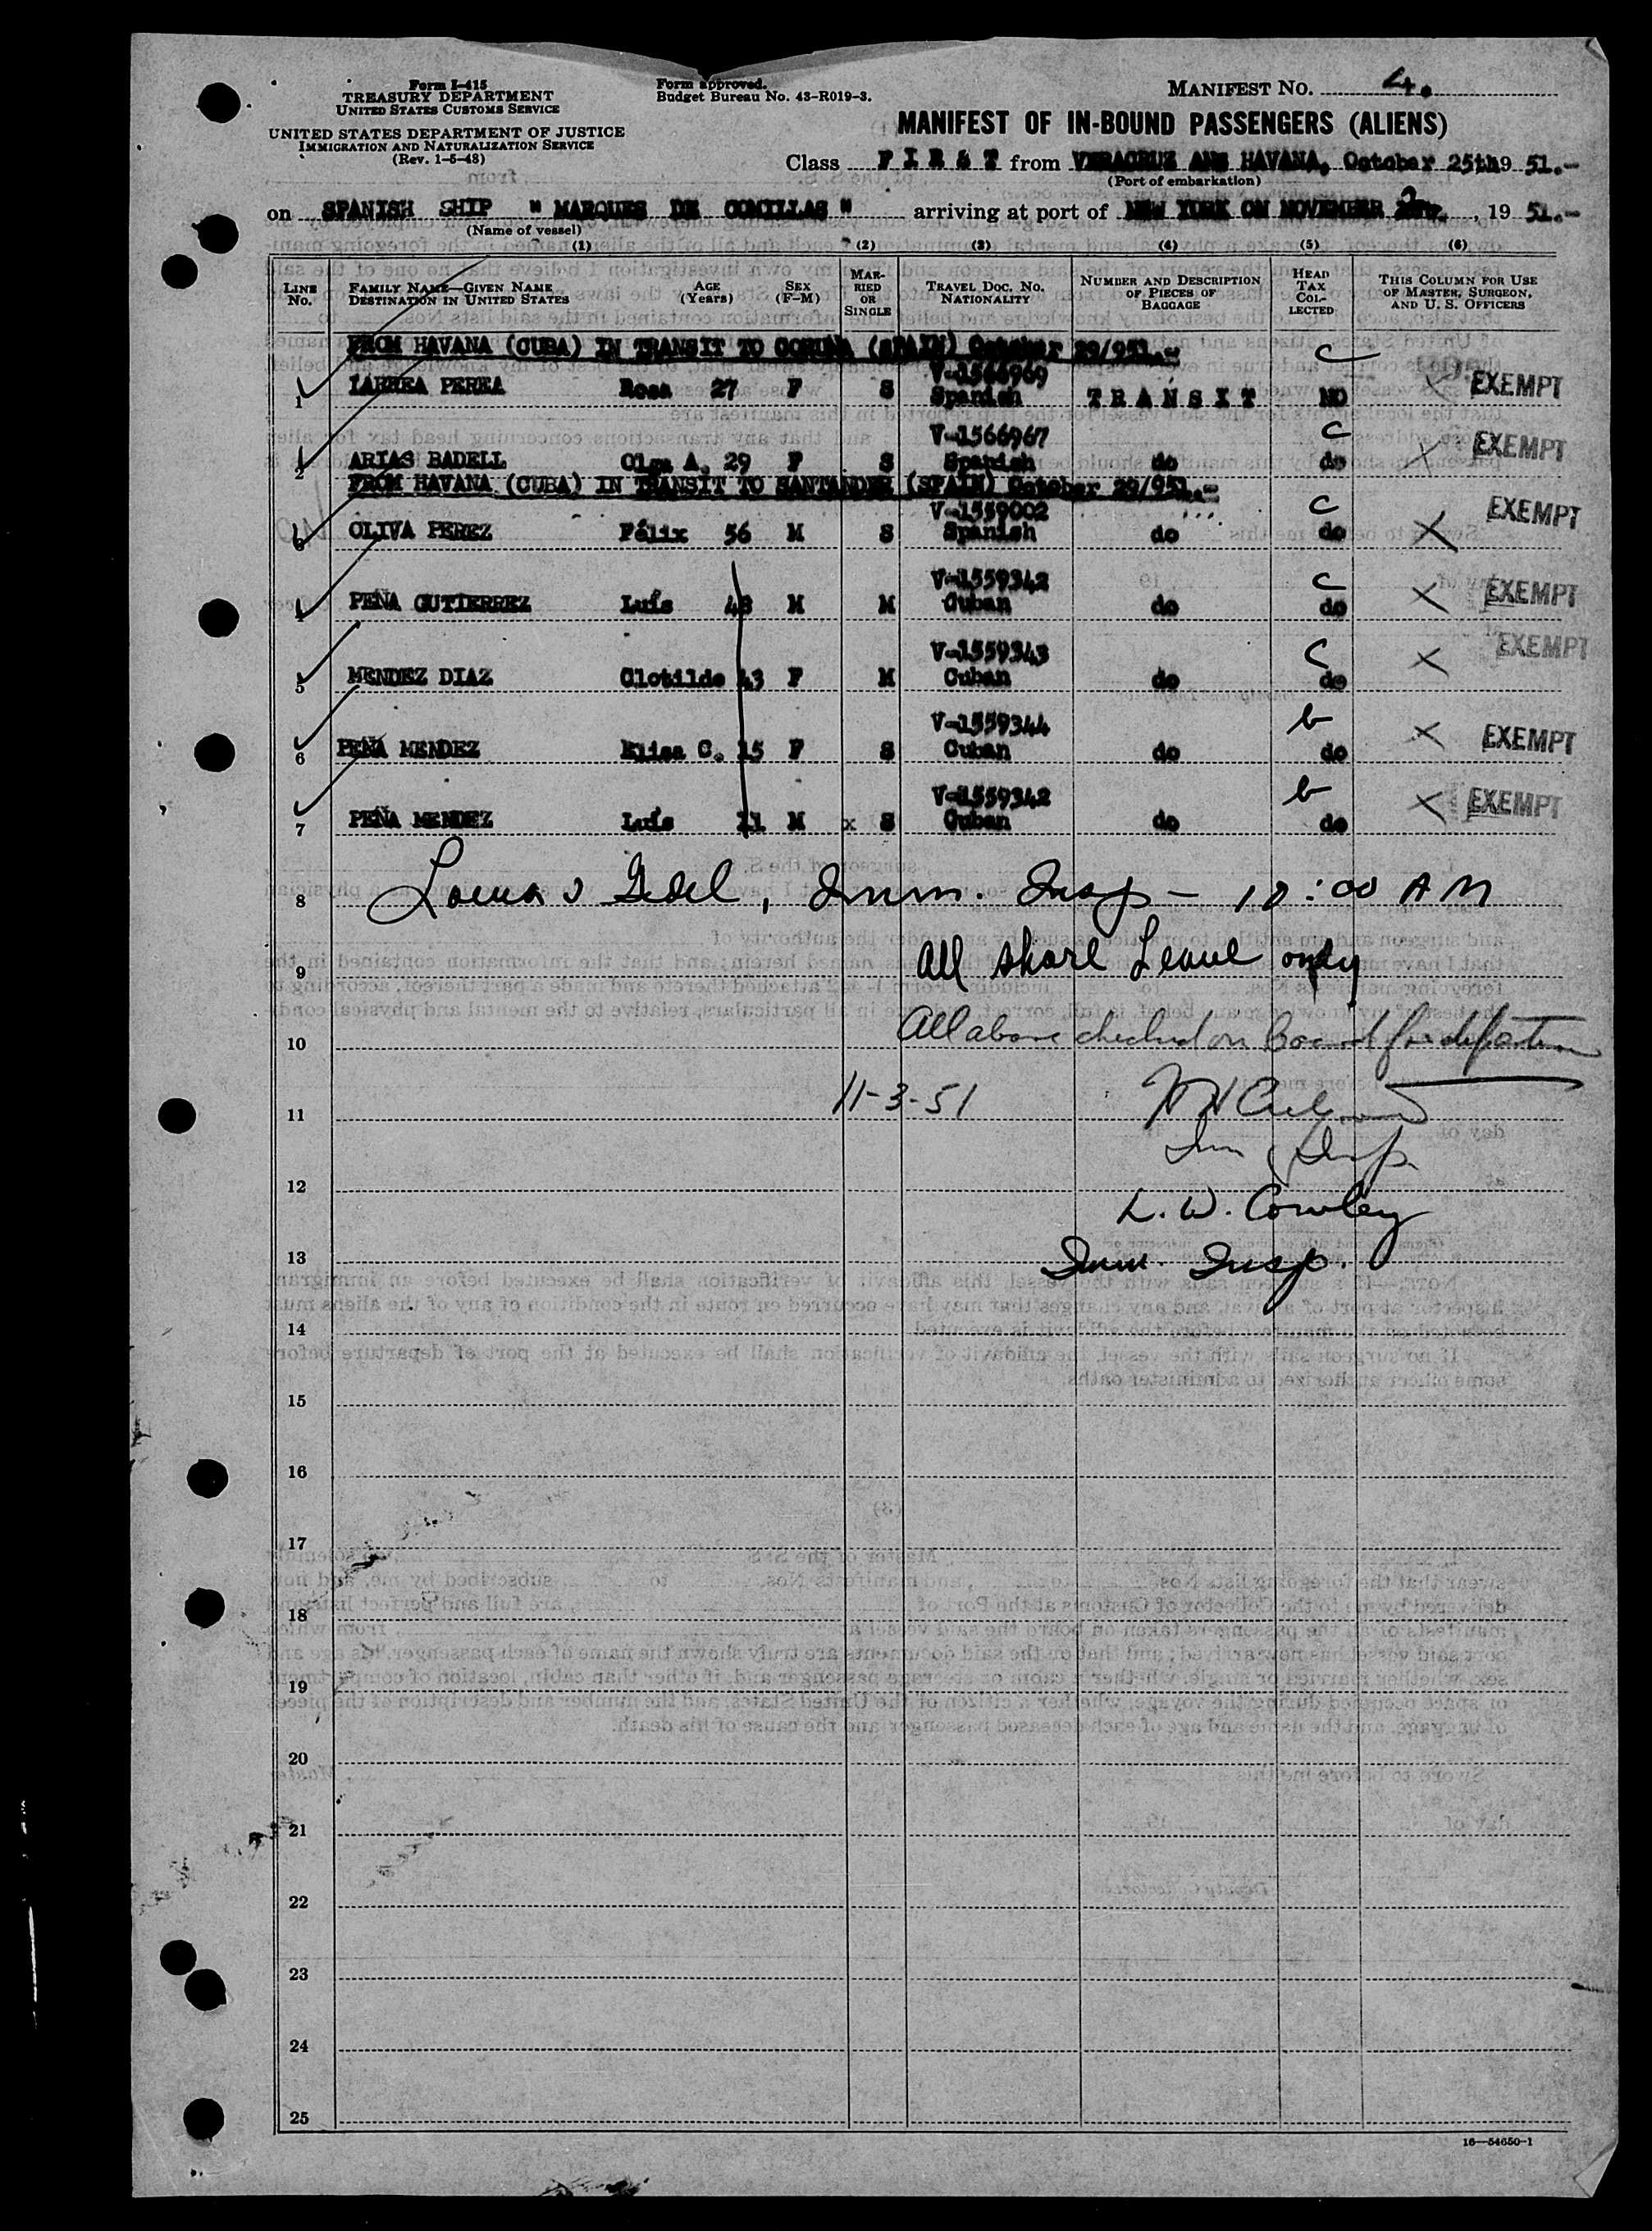 Form I-415
TREASURY DEPARTMENT
UNITED STATES CUSTOMS SERVICE
UNITED STATES DEPARTMENT OF JUSTICE
IMMIGRATION AND NATURALIZATION SERVICE
(Rev. 1-5-48)
Form approved.
Budget Bureau No. 43-R019-3.
MANIFEST NO. 4.
MANIFEST OF IN-BOUND PASSENGERS (ALIENS)
Class F I R S T from VERACRUZ AND HAVANA, October 25th 19 51.-
(Port of embarkation)
on SPANISH SHIP " MARQUES DE COMILLAS " arriving at port of NEW YORK ON NOVEMBER , 19 51.-
(Name of vessel)
(1) (2) (3) (4) (5) (6)
LINE No. FAMILY NAME—GIVEN NAME DESTINATION IN UNITED STATES AGE (Years) SEX (F-M) MARRIED OR SINGLE TRAVEL DOC. NO. NATIONALITY NUMBER AND DESCRIPTION OF PIECES OF BAGGAGE HEAD TAX COLLECTED THIS COLUMN FOR USE OF MASTER, SURGEON, AND U. S. OFFICERS
FROM HAVANA (CUBA) IN TRANSIT TO CORUÑA (SPAIN) October 29/951.- C
V-1566969
1 LARREA PEREA Rosa 27 F S Spanish T R A N S I T NO X EXEMPT
V-1566967 C
2 ARIAS BADELL Olga A. 29 F S Spanish do do X EXEMPT
FROM HAVANA (CUBA) IN TRANSIT TO SANTANDER (SPAIN) October 29/951.-
V-1559002 C
3 OLIVA PEREZ Félix 56 M S Spanish do do X EXEMPT
V-1559342 C
4 PEÑA GUTIERREZ Luís 48 M M Cuban do do X EXEMPT
V-1559343 C
5 MENDEZ DIAZ Clotilde 43 F M Cuban do do X EXEMPT
V-1559344 b
6 PEÑA MENDEZ Elisa C. 15 F S Cuban do do X EXEMPT
V-1559342 b
7 PEÑA MENDEZ Luís 11 M x S Cuban do do X EXEMPT
8 Imm. Insp - 10:00 AM
9 All shore Leave only
10 All above checked on Board for
11 11-3-51
Imm Insp.
12 L. W. Cowley
13 Imm. Insp.
14
15
16
17
18
19
20
21
22
23
24
25
16—54650-1